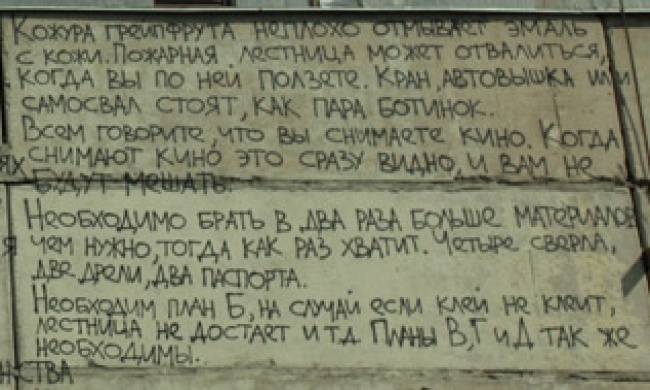 Кожура грейпфрута неплохо отмывает эмаль
с кожи. Пожарная лестница может отвалиться,
когда вы по ней ползете. Кран, автовышка или
самосвал стоят, как пара ботинок.
Всем говорите, что вы снимаете кино. Когда
ях снимают кино это сразу видно, и вам не
будут мешать.
Необходимо брать в два раза больше материалов
я чем нужно, тогда как раз хватит. Четыре сверла,
две дрели, два паспорта.
Необходим план Б, на случай если клей не клеит,
лестница не достает и т.д. Планы В, Г и Д так же
необходимы.
нства